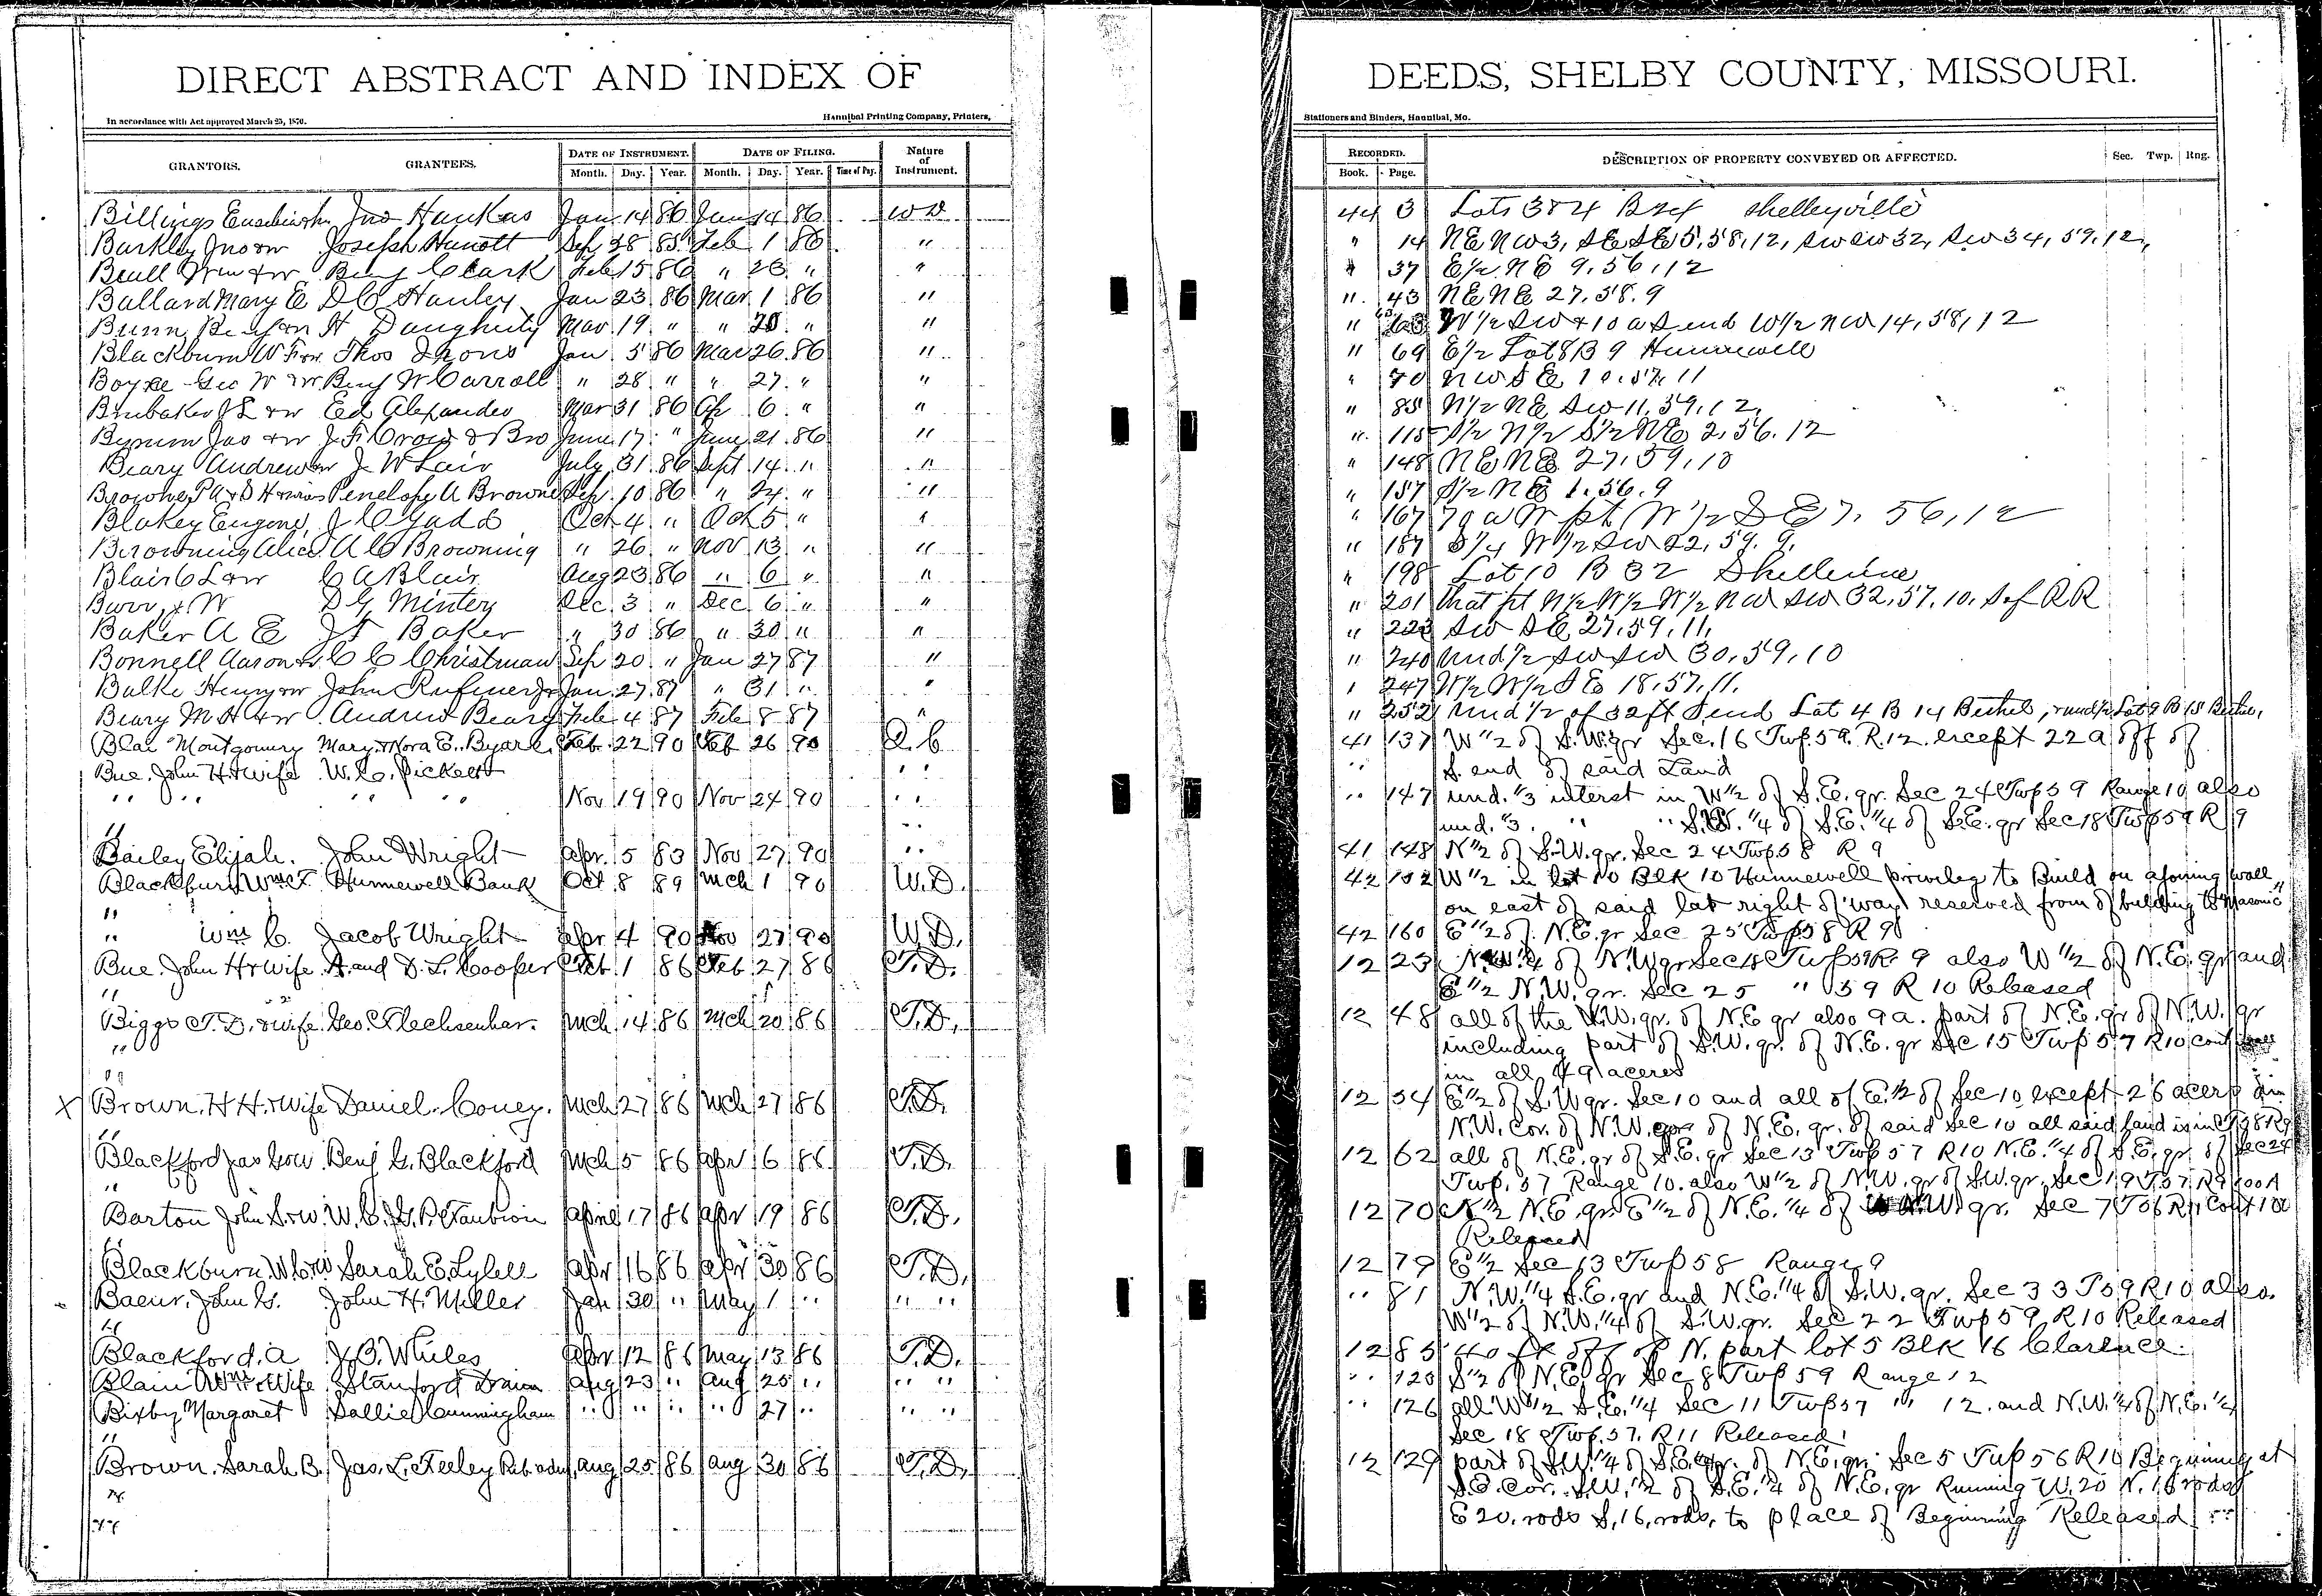 DIRECT ABSTRACT AND INDEX OF
DEEDS, SHELBY COUNTY, MISSOURI.
In accordance with Act approved March 25, 1870.
Hannibal Printing Company, Printers,
Stationers and Binders, Hannibal, Mo.
GRANTORS. GRANTEES. DATE OF INSTRUMENT. DATE OF FILING. Nature of Instrument.
Month. Day. Year. Month. Day. Year. Time of Day.
RECORDED. DESCRIPTION OF PROPERTY CONVEYED OR AFFECTED. Sec. Twp. Rng.
Book. Page.
Billings Jno Hankas Jan 14 86 Jan 14 86 WD 44 3 Lots 3 & 4 B
Barkley Jno & w Joseph Hunott Sep 28 85 Feb 1 86 " " 14 NE NW 3, SE SE 5, 58, 12, SW SW 32, SW 34, 59, 12,
Beall Wm & w Benj Clark Feb 15 86 " 26 " " " 37 E½ NE 9, 56, 12
Ballard Mary E D C Hanley Jan 23 86 Mar 1 86 " " 43 NE NE 27. 58. 9
Bunn Benj & w H Daugherty Mar 19 " " 20 " " " 63 W½ SW & 10 a S end W½ NW 14, 58, 12
Blackburn W F & w Thos Irons Jan 5 86 Mar 26 86 " " 69 E½ Lot 8 B 9 Hunnewell
Boyce Geo W & w Benj W Carroll " 28 " " 27 " " " 70 NW SE 10. 57. 11
Brubaker J L & w Ed Alexander Mar 31 86 Ap 6 " " " 85 N½ NE SW 11, 59, 12,
Bynum Jas & w J. F. Cross & Bro June 17 " June 21 86 " " 115 S½ N½ S½ NE 2, 56. 12
Beary Andrew & w J W Lair July 31 86 Sept 14 " " " 148 NE NE 27, 59, 10
Browne P A & D H Penelope A Browne Sep 10 86 " 24 " " " 157 S½ NE 1. 56. 9
Blakey Eugene J C Gadd Oct 4 " Oct 5 " " " 167 70 a W pt W½ SE 7, 56, 12
Browning Alice A C Browning " 26 " Nov 13 " " " 187 W½ SW 22, 59. 9.
Blair C L & w C A Blair Aug 23 86 " 6 " " " 198 Lot 10 B 32
Burr & W D G Minter Dec 3 " Dec 6 " " " 201 that pt N½ W½ W½ NW SW 32, 57, 10, S of RR
Baker A E J T Baker " 30 86 " 30 " " " 223 SW SE 27, 59, 11,
Bonnell Aaron C C Christman Sep 20 " Jan 27 87 " " 240 und ½ SW SW 30, 59, 10
Balke Henry & w John Rufener Jr Jan 27 87 " 31 " " " 247 W½ W½ SE 18, 57, 11.
Beary M H & w Andrew Beary Feb 4 87 Feb 8 87 " " 252 und ½ of 32 ft S end Lot 4 B 14 Bethel, & und ½ Lot 9 B 15 Bethel,
Montgomery Mary & Nora E. Byars Feb 22 90 Feb 26 90 Q. C 41 137 W ½ of S.W. qr Sec. 16 Twp. 59. R. 12. except 22 a off of
Bue. John H. & wife W. C. Pickett " " S. end of said Land
" " " " Nov 19 90 Nov 24 90 " " " 147 und. ⅓ interst in W ½ of S.E. qr. Sec 24 Twp 59 Range 10 also
" und. ⅓. " " S.W. ¼ of S.E. ¼ of S.E. qr Sec 18 Twp 59 R 9
Bailey Elijah. John Wright Apr. 5 83 Nov 27 90 " " 41 148 N ½ of S.W. qr. Sec 24 Twp. 58 R 9
Hunnewell Bank Oct 8 89 Mch 1 90 W.D. 42 152 W ½ in lot 10 Blk 10 Hunnewell privileg to Build on ajoning wall
" on east of said lat right of way reserved from of building to Masonic
" Wm C. Jacob Wright Apr 4 90 Nov 27 90 W.D. 42 160 E ½ of N.E. qr Sec 25 Twp 58 R 9
Bue. John H & wife A. and D. L. Cooper Feb 1 86 Feb 27 86 T.D. 12 23 N.W. ¼ of N.W qr Sec 18 Twp 59 R. 9 also W ½ of N.E. qr and
" E ½ N.W. qr. Sec 25 " 59 R 10 Released
Biggs T. D. & wife Geo. Flechsenhar. Mch 14 86 Mch 20 86 T.D. 12 48 all of the N.W. qr. of N.E qr also 9 a. part of N.E. qr of N.W. qr
" including part of S.W. qr. of N.E. qr Sec 15 Twp 57 R 10 cont
" in all 49 aceres
X Brown. H H. & Wife Daniel. Coney. Mch 27 86 Mch 27 86 T.D. 12 54 E ½ of S.W qr. Sec 10 and all of E. ½ of Sec 10 except 26 acers in
" N.W. cor. of N.W. qr of N.E. qr. of said Sec 10 all said land is in T 58 R 9
Blackford Jas G & w Benj G. Blackford Mch 5 86 Apr 6 86 T.D. 12 62 all of N.E. qr of S.E. qr Sec 13 Twp 57 R 10 N.E. ¼ of S.E. qr. of Sec 24
" Twp. 57 Range 10. also W ½ of N.W. qr of S.W. qr. Sec 19 T 57 R 9 100 A
Barton John S. & w W. C. & G. P. Taubion Aprie 17 86 Apr 19 86 T.D. 12 70 N ½ N.E. qr. E ½ of N.E. ¼ of N.W. qr. Sec 7 T 56 R 11 Cont 100
" Released
Blackburn. W C & w Sarah E. Lylell Apr 16 86 Apr 30 86 T.D. 12 79 E ½ Sec 13 Twp 58 Range 9
Baeur. John G. John H. Miller Jan 30 " May 1 " " " " 81 N.W. ¼ S.E. qr and N.E. ¼ of S.W. qr. Sec 33 T 59 R 10 also.
" W ½ of N.W. ¼ of S.W. qr. Sec 22 Twp 59 R 10 Released
Blackford. A J. B. Whiles Apr 12 86 May 13 86 T.D. 12 85 40 ft off of N. part lot 5 Blk 16 Clarence.
Blain Wm & Wife Stanford Drain Aug 23 " Aug 25 " " " " 120 S ½ of N.E. qr Sec 8 Twp 59 Range 12
Bixby Margaret Sallie Cunningham " " " " 27 " " " " 126 all W ½ S.E. ¼ Sec 11 Twp 57 " 12. and N.W. ¼ of N.E. ¼
" Sec 18 Twp. 57. R 11 Released
Brown. Sarah B. Jas. L. Feeley Pub adm. Aug 25 86 Aug 30 86 T.D. 12 129 part of S.W. ¼ of S.E. qr. of N.E. qr. Sec 5 Twp 56 R 10 Beginning at
" S.E. cor. S.W. ½ of S.E. ¼ of N.E. qr Running W. 20 N. 16 rods
" E 20. rods S. 16. rods, to place of Beginning Released